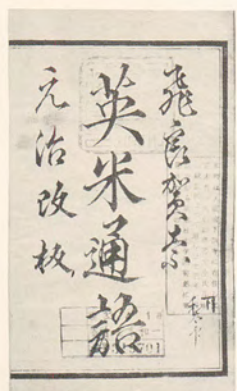 飛良賀奈
英米通語
元治改板